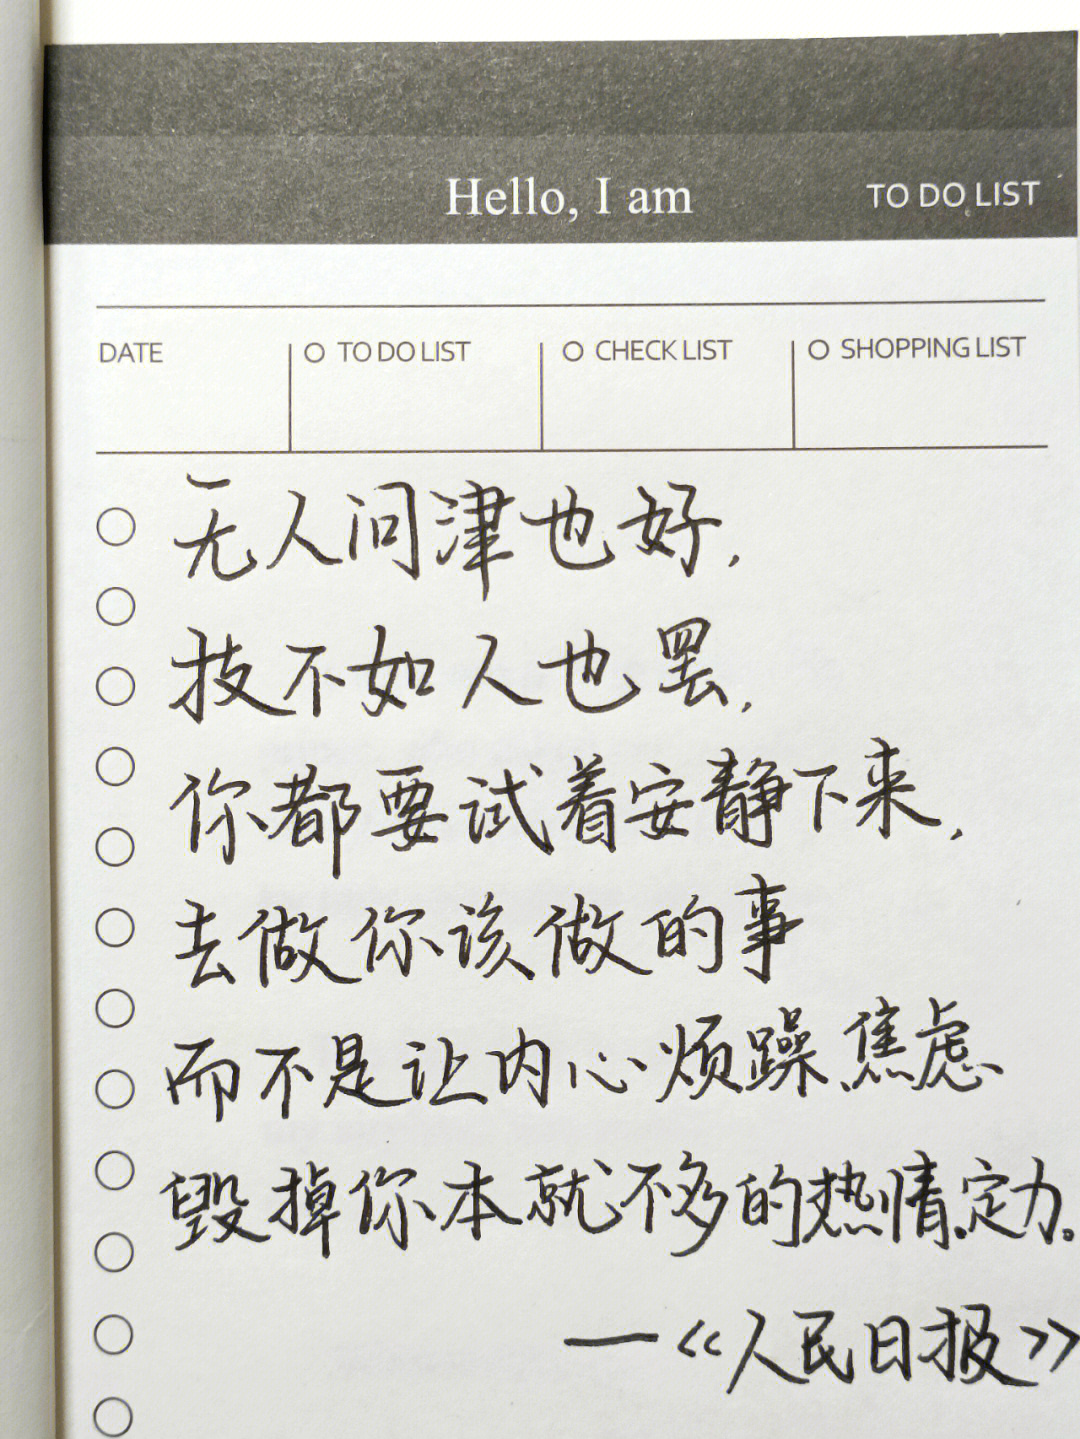 Hello, I am
TO DO LIST
DATE
TO DO LIST
CHECK LIST
SHOPPING LIST
无人问津也好,
技不如人也罢,
你都要试着安静下来,
去做你该做的事
而不是让内心烦躁焦虑
毁掉你本就不多的热情、定力。
—《人民日报》